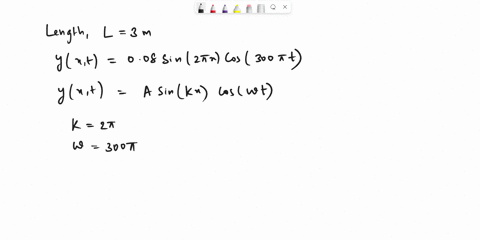 Length, L = 3 m
y(x,t) = 0.08 sin(2πx) cos(300πt)
y(x,t) = A sin(Kx) cos(ωt)
K = 2π
ω = 300π